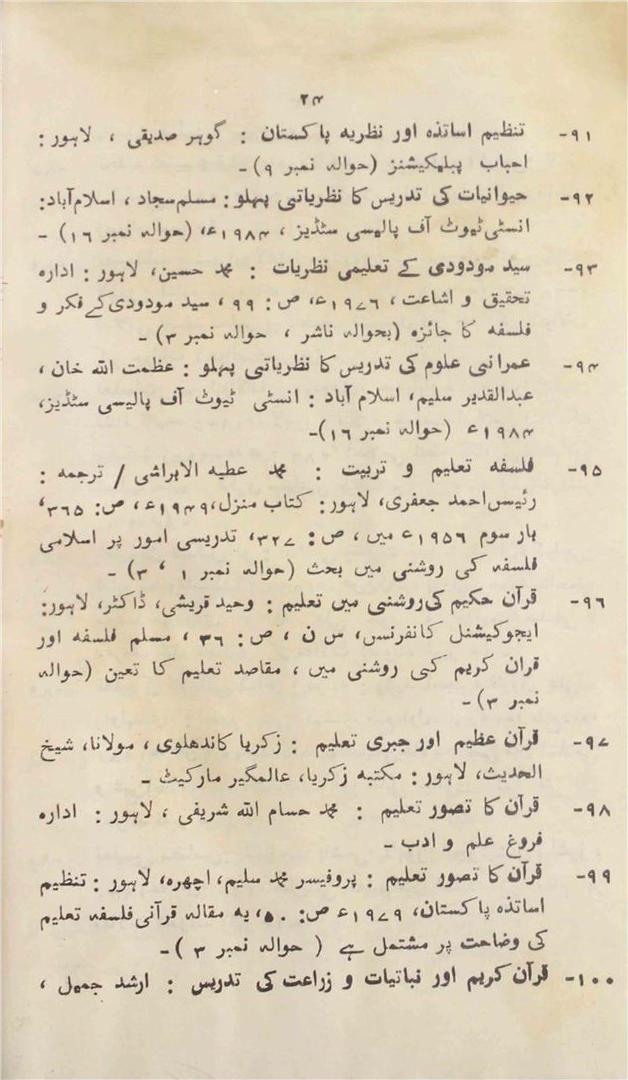 ۲۴
۹۱- تنظیم اساتذہ اور نظریہ پاکستان : گوہر صدیقی ، لاہور :
احباب پبلیکیشنز (حوالہ نمبر ۹) -
۹۲- حیوانیات کی تدریس کا نظریاتی پہلو : مسلم سجاد ، اسلام آباد:
انسٹی ٹیوٹ آف پالیسی سٹڈیز ، ۱۹۸۴ء، (حوالہ نمبر ۱۶) -
۹۳- سید مودودی کے تعلیمی نظریات : محمد حسین، لاہور : ادارہ
تحقیق و اشاعت ، ۱۹۷۶ء، ص : ۹۹ ، سید مودودی کے فکر و
فلسفہ کا جائزہ (بحوالہ ناشر ، حوالہ نمبر ۳) -
۹۴- عمرانی علوم کی تدریس کا نظریاتی پہلو : عظمت اللہ خان ،
عبدالقدیر سلیم، اسلام آباد : انسٹی ٹیوٹ آف پالیسی سٹڈیز،
۱۹۸۴ء (حوالہ نمبر ۱۶)-
۹۵- فلسفہ تعلیم و تربیت : محمد عطیہ الابراشی / ترجمہ :
رئیس احمد جعفری، لاہور: کتاب منزل، ۱۹۴۹ء، ص: ۳۶۵،
بار سوم ۱۹۵۶ء میں، ص : ۳۲۷، تدریسی امور پر اسلامی
فلسفہ کی روشنی میں بحث (حوالہ نمبر ۱ ، ۳) -
۹۶- قرآن حکیم کی روشنی میں تعلیم : وحید قریشی، ڈاکٹر، لاہور:
ایجوکیشنل کانفرنس، س ن ، ص : ۳۶ ، مسلم فلسفہ اور
قران کریم کی روشنی میں ، مقاصد تعلیم کا تعین (حوالہ
نمبر ۳) -
۹۷- قرآن عظیم اور جبری تعلیم : زکریا کاندھلوی ، مولانا، شیخ
الحدیث، لاہور : مکتبہ زکریا، عالمگیر مارکیٹ -
۹۸- قرآن کا تصور تعلیم : محمد حسام اللہ شریفی ، لاہور : ادارہ
فروغ علم و ادب -
۹۹- قرآن کا تصور تعلیم : پروفیسر محمد سلیم، اچھرہ، لاہور : تنظیم
اساتذہ پاکستان، ۱۹۷۹ء ص: ۵۰، یہ مقالہ قرآنی فلسفہ تعلیم
کی وضاحت پر مشتمل ہے ( حوالہ نمبر ۳ ) -
۱۰۰- قرآن کریم اور نباتیات و زراعت کی تدریس : ارشد جمیل ،